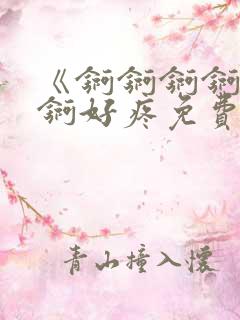 《锕锕锕锕
锕好疼免费
青山撞入怀